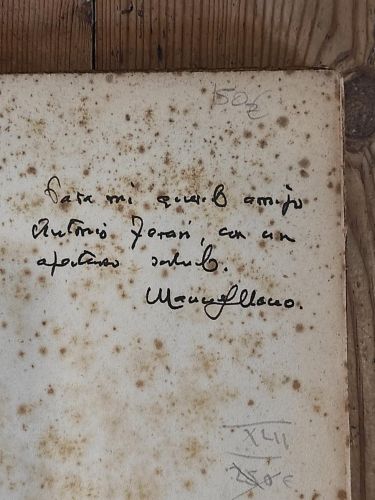 50€
Para mi querido amigo
Antonio Terán, con un
afectuoso saludo.
Manuel Llano.
XLII
250€